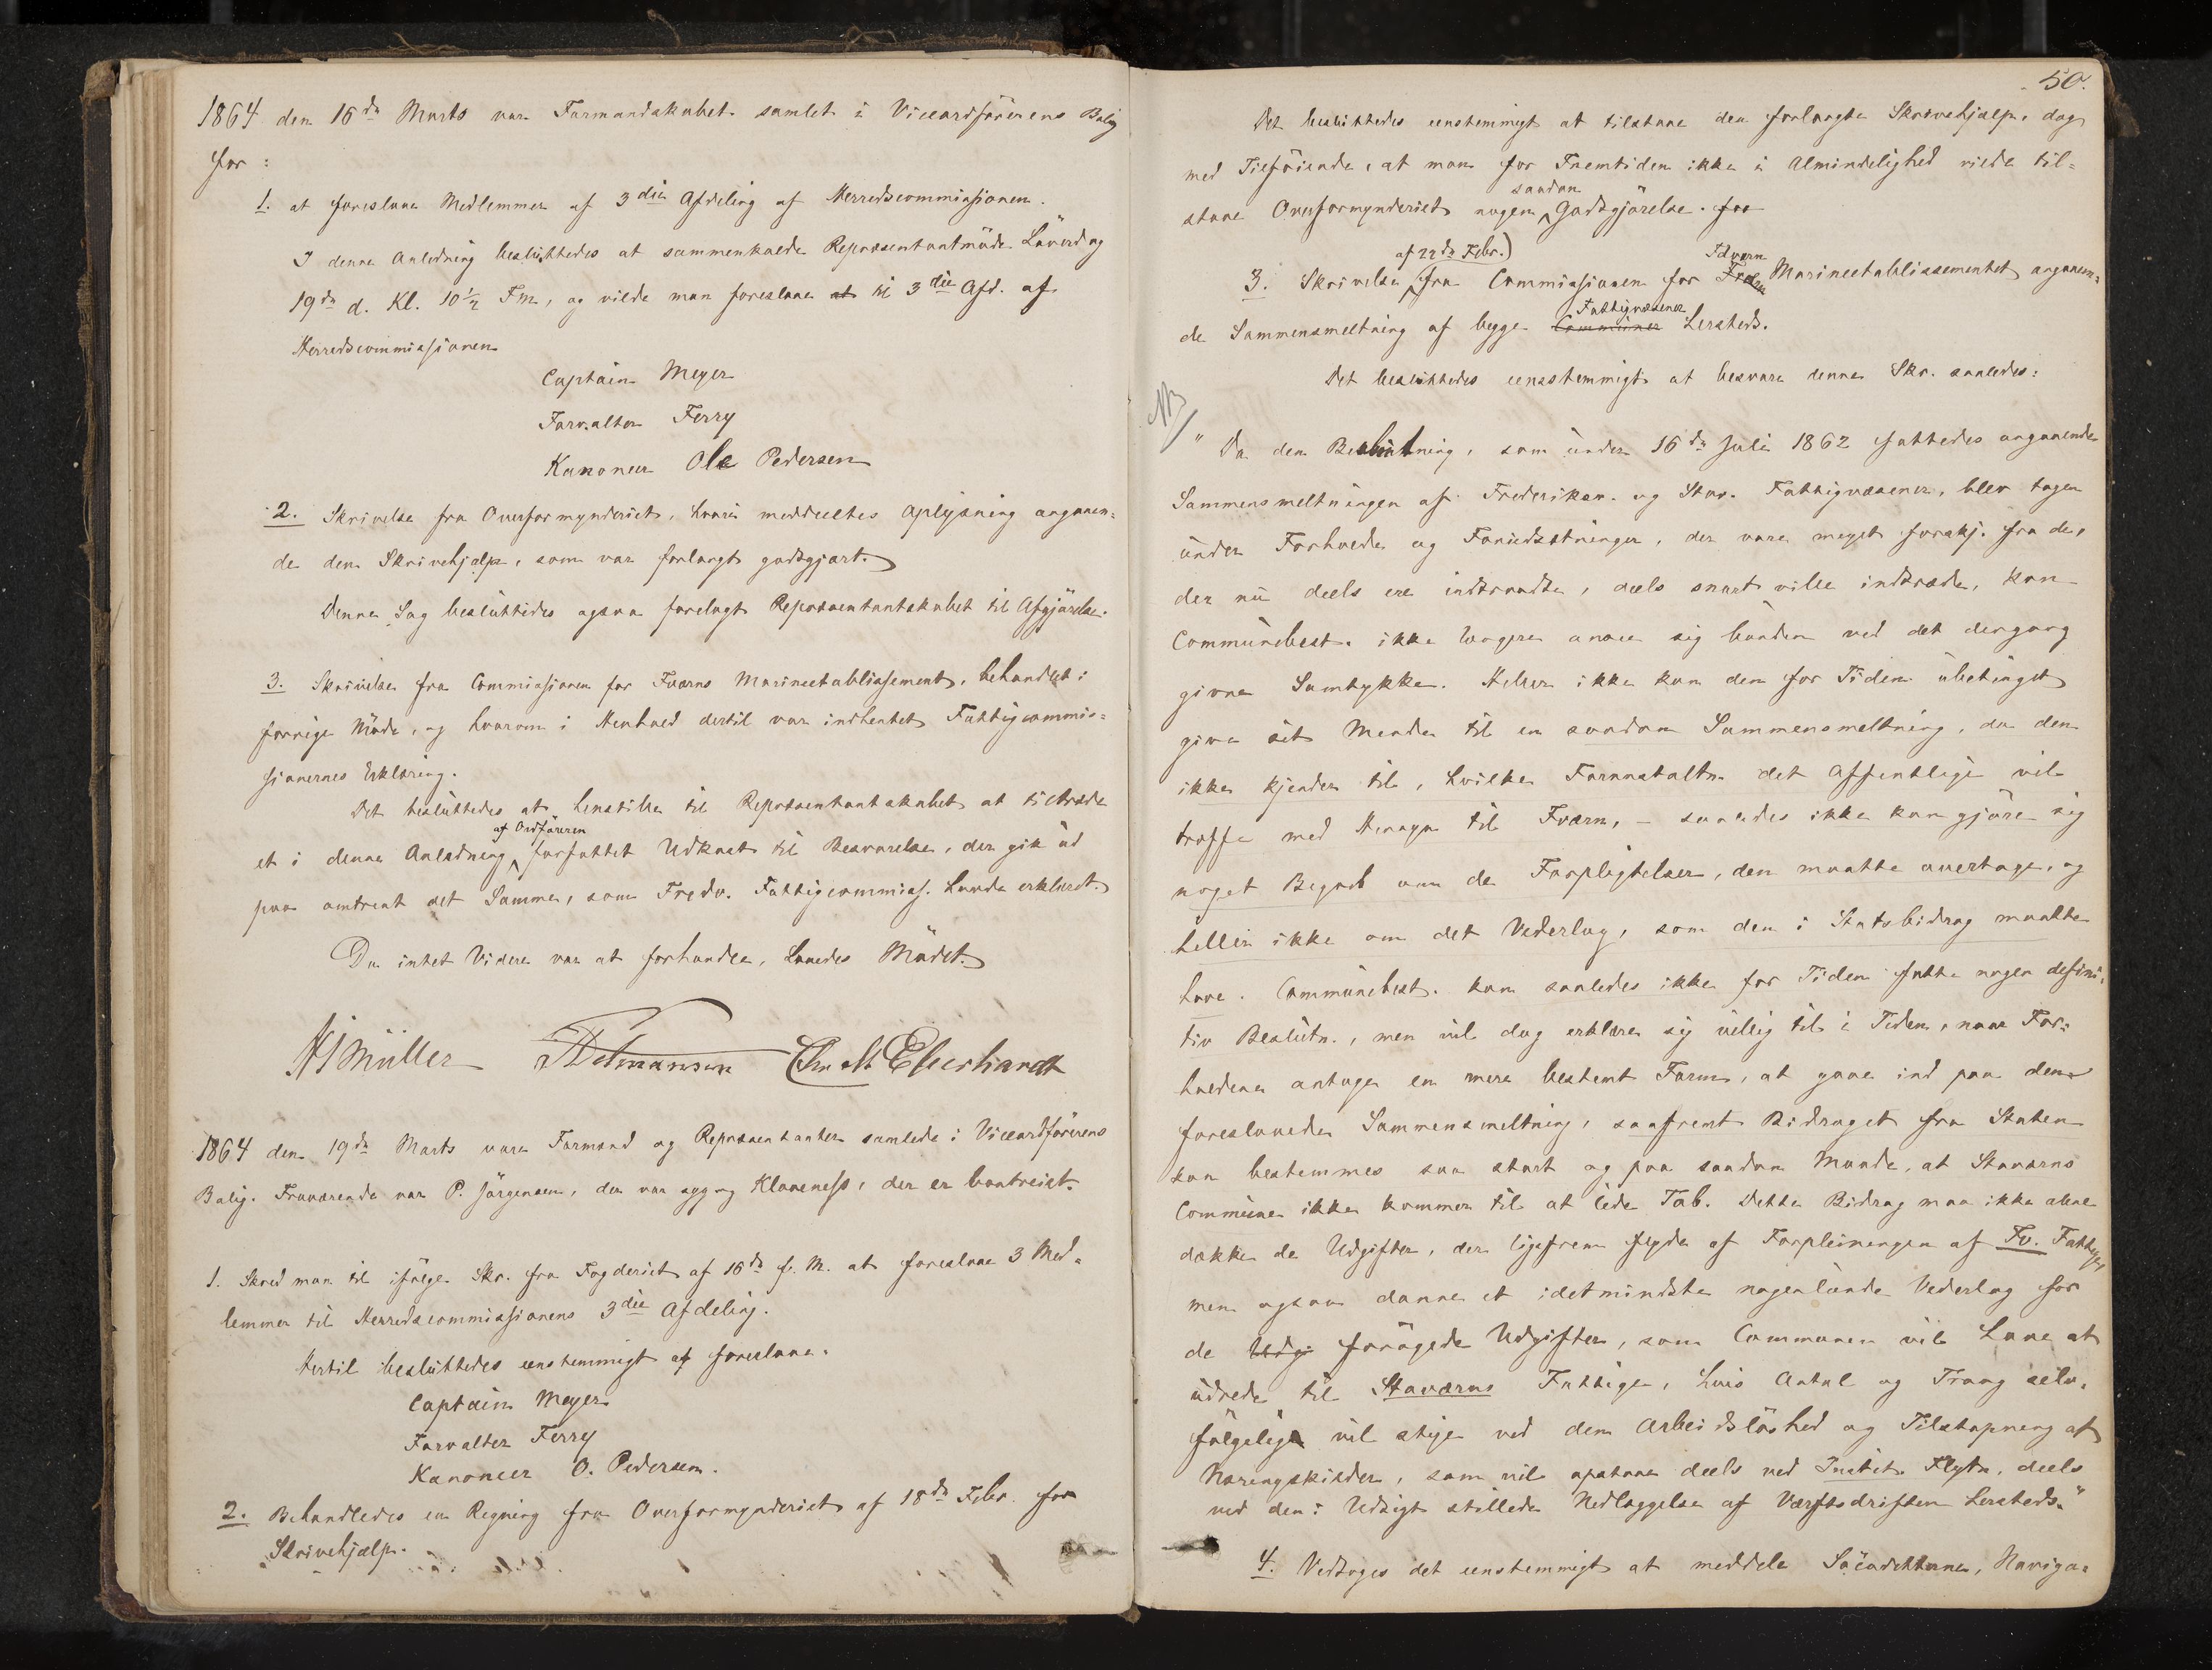 1864 den 16de Marts var Formandskabet samlet i Viceordförerens Bolig
for:
1. at foreslaae Medlemmer af 3die Afdeling af Herredscommissionen.
I denne Anledning besluttedes at sammenkalde Repræsentantmöde Löverdag
19de d. Kl. 10½ Fm., og vilde man foreslaae at til 3die Afd. af
Herredscommissionen
Captain Meyer
Forvalter Ferry
Kanoneer Ole Pedersen
2. Skrivelse fra Overformynderiet, hvori meddeeltes Oplysning angaaen-
de den Skrivehjælp, som var forlangt godtgjort.
Denne Sag besluttedes ogsaa forelagt Repræsentantskabet til Afgjörelse.
3. Skrivelse fra Commissionen for Fværns Marineetablissement, behandlet i
forrige Möde, og hvorom i Henhold dertil var indhentet Fattigcommis-
sionernes Erklæring.
Det besluttedes at henstille til Repræsentantskabet at tiltræde
af Ordföreren
et i denne Anledning forfattet Udkast til Besvarelse, der gik ud
paa omtrent det Samme, som Fredv. Fattigcommiss. havde erklæret.
Da intet Videre var at forhandle, hævedes Mödet.
HJMüller Chr. Eberhardt
1864 den 19de Marts vare Formænd og Repræsentanter samlede i Viceordförerens
Bolig. Fraværende var P. Jörgensen, der var syg og Klaveness, der er bortreist.
1. Skred man til ifölge Skr. fra Fogderiet af 16de f. M. at foreslaae 3 Med-
lemmer til Herredscommissionens 3die Afdeling.
Hertil besluttedes eenstemmigt at foreslaae:
Captain Meyer
Forvalter Ferry
Kanoneer O. Pedersen.
2. Behandledes en Regning fra Overformynderiet af 18de Febr. for
Skrivehjælp.
50.
Det besluttedes eenstemmigt at tilstaae den forlangte Skrivehjælp, dog
med Tilföiende, at man for Fremtiden ikke i Almindelighed vilde til-
saadan
staae Overformynderiet nogen Godtgjörelse. for
af 22de Febr.) Fdværn
3. Skrivelse fra Commissionen for Marineetablissementet angaaen-
Fattigvæsener
de Sammensmeltning af begge Communer hersteds.
Det besluttedes eensstemmigt at besvare denne Skr. saaledes:
NB
"Da den Beslutning, som under 16de Juli 1862 fattedes angaaende
Sammensmeltningen af Frederiksv. og Stav. Fattigvæsener, blev tagen
under Forholde og Forudsætninger, der vare meget forskj. fra de,
der nu deels ere indtraadte, deels snart ville indtræde, kan
Communebest. ikke længere ansee sig bunden ved det dengang
givne Samtykke. Heller ikke kan den for Tiden ubetinget
give sit Minde til en saadan Sammensmeltning, da den
ikke kjender til, hvilke Foranstaltn. det Offentlige vil
træffe med Hensyn til Fværn, – saaledes ikke kan gjöre sig
noget Begreb om de Forpligtelser, den maatte overtage, og
heller ikke om det Vederlag, som den i Statsbidrag maatte
have. Communebest. kan saaledes ikke for Tiden fatte nogen defini-
tiv Beslutn., men vil dog erklære sig villig til i Tiden, naar For-
holdene antage en mere bestemt Form, at gaae ind paa den
foreslaaede Sammensmeltning, saafremt Bidraget fra Staten
kan bestemmes saa stort og paa saadan Maade, at Staværns
Commune ikke kommer til at lide Tab. Dette Bidrag maa ikke alene
dække de Udgifter, der ligefrem flyde af Forpleiningen af Fv. Fattige,
men ogsaa danne et idetmindste nogenlunde Vederlag for
de Udgi forögede Udgifter, som Communen vil have at
udrede til Staværns Fattige, hvis Antal og Trang selv-
fölgelig vil stige ved den Arbeidslöshed og Tilstopning af
Næringskilder, som vil opstaae deels ved Instit. Flytn. deels
ved den i Udsigt stillede Nedlæggelse af Værftsdriften hersteds."
4. Vedtoges det eenstemmigt at meddele Söcadetterne, Naviga-